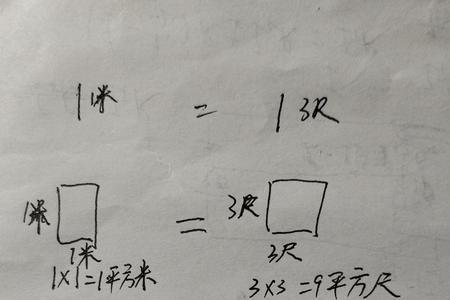 1米 = 1 3尺
1米 = 3尺
1米 3尺
1×1=1平方米 3×3=9平方尺